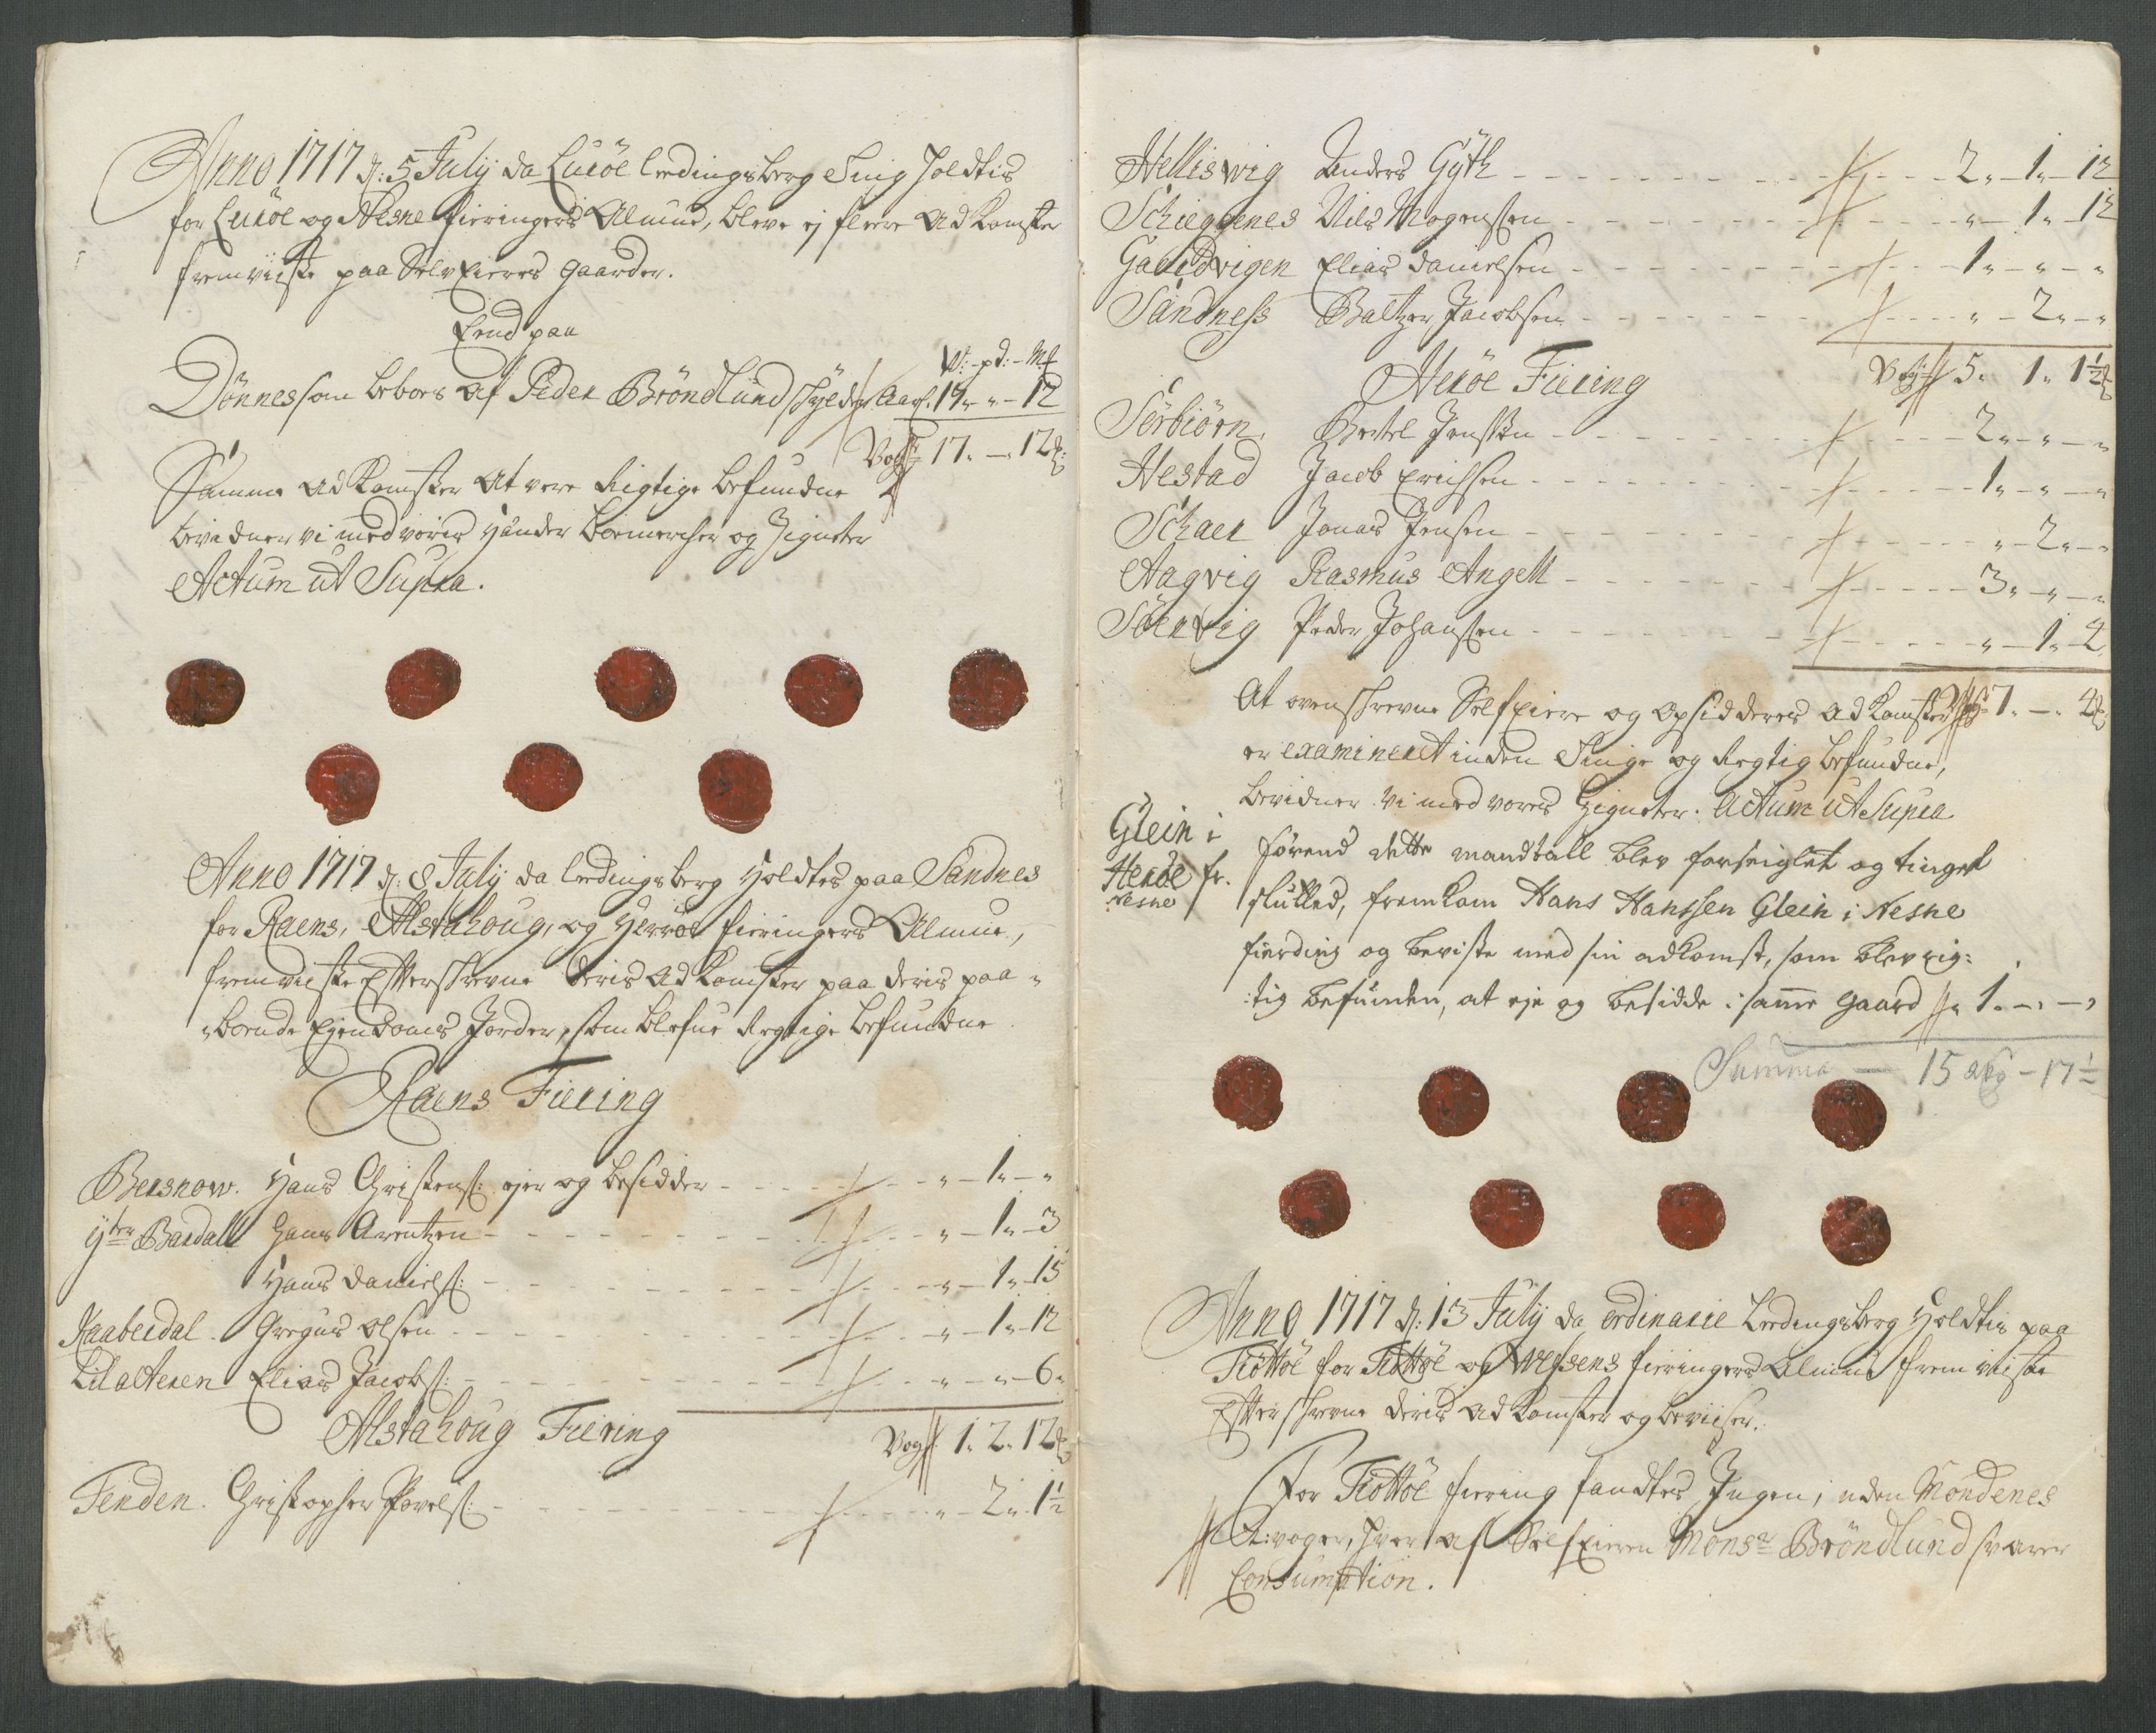 Anno 1717 d: 5 July da Luröe Ledingsberg Ting Holdtis
for Luröe og Nesne fieringers Almue, bleve ej fleere Adkomster
fremviiste paa Selv Eieres gaarder.
End paa
W: - pd: - Mk
Dönnes som beboes af Peder Bröndlund schylder Aarl. 17 „ „ - 12
Vog 17. - 12
Samme Adkomster at vere Rigtige befundne
bevidner vi med voris Hænder boemercher og Signeter
Actum ut Supra.
Anno 1717 d: 8 July da Ledingsberg Holdtes paa Sandnes
for Raens, Alstahoug, og Herröe fieringers Almue,
fremviiste Efterschrevne deris Adkomster paa deris paa-
boende Ejendoms Jorder, som blefue Rigtige befundne
Raens Fiering
Bersnow. Hans Christens: ejer og besidder - - - „ - 1 „ - „
Yter Bardall Hans Arentzen - - - „ - 1 „ - 3
Hans Daniels: - - - „ - 1 „ - 15
Raaberdal. Gregus Olsen - - - „ - 1 „ - 12
Lila Aeren Elias Jacobs: - - - „ - „ - 6 „
Alstahoug Fiering
Vog 1. 2. 12
Fenden. Christopher Povels: - - - „ - 2 „ 1½
Hellisvig Anders Gyth - - - 2 „ - 1 „ - 12
Schiegnenes Nils Mogensen - - - „ - 1 „ - 12
Gauidvigen Elias Danielsen - - - 1 „ - „ - „
Sandness Baltzer Jacobsen - - - „ - 2 „ - „
Heröe Fiering
Vog 5. 1. 1½
Sörbiörn, Bertel Jensen - - - 2 „ - „ - „
Hestad Jacob Erichsen - - - 1 „ - „ - „
Schaer Jonas Jensen - - - „ - 2 „ - „
Aagvig Rasmus Angell - - - 3 „ - „ - „
Söervig Peder Johansen - - - „ - 1 „ - 4
At ovenschrevne Selfeiere og opsidderes Adkomster 7. -. 4
er examineret inden Tinge og Rigtig befundne,
bevidner vi med vores Signeter. Actum ut Supra
Glein i
Heröe fr.
Nesne
förend dette mandtall blev forseiglet og tinget
slutted, fremkom Hans Hanssen Glein i Nesne
fierding og beviste med sin adkomst, som blev rig:
:tig befunden, at eje og besidde i samme gaard 1. -. -.
Summa - 15 - 17½
Anno 1717 d: 13 July da ordinarie Ledingsberg Holdtis paa
Tiöttöe for Tiöttöe og Wefsens fieringers Almue fremviiste
Efterschrevne deris Adkomster og beviiser.
For Tiöttöe fiering fandtes Ingen, uden Mondenes
2: voger, hvor af Selfeieren Monsr Bröndlund svarer
Consumption.